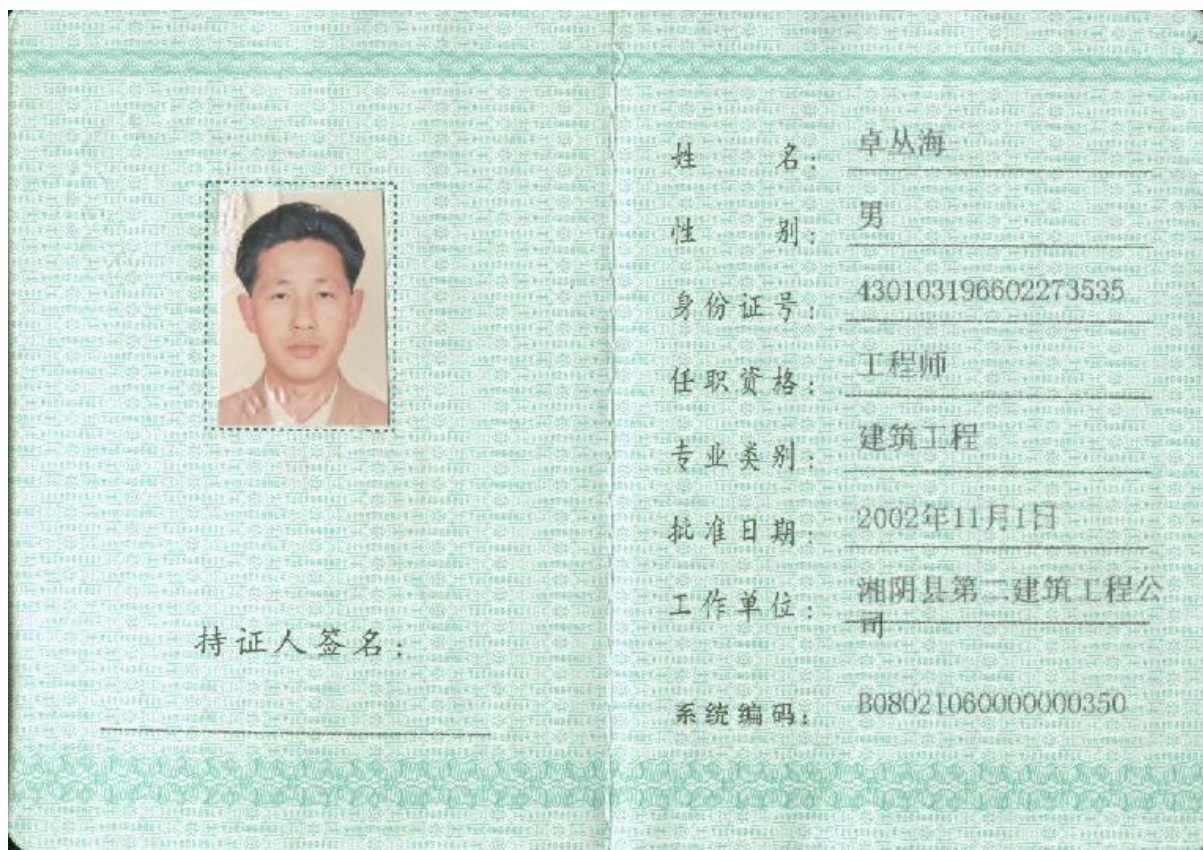 持证人签名：
姓名：卓丛海
性别：男
身份证号：430103196602273535
任职资格：工程师
专业类别：建筑工程
批准日期：2002年11月1日
工作单位：湘阴县第二建筑工程公
司
系统编码：B08021060000000350